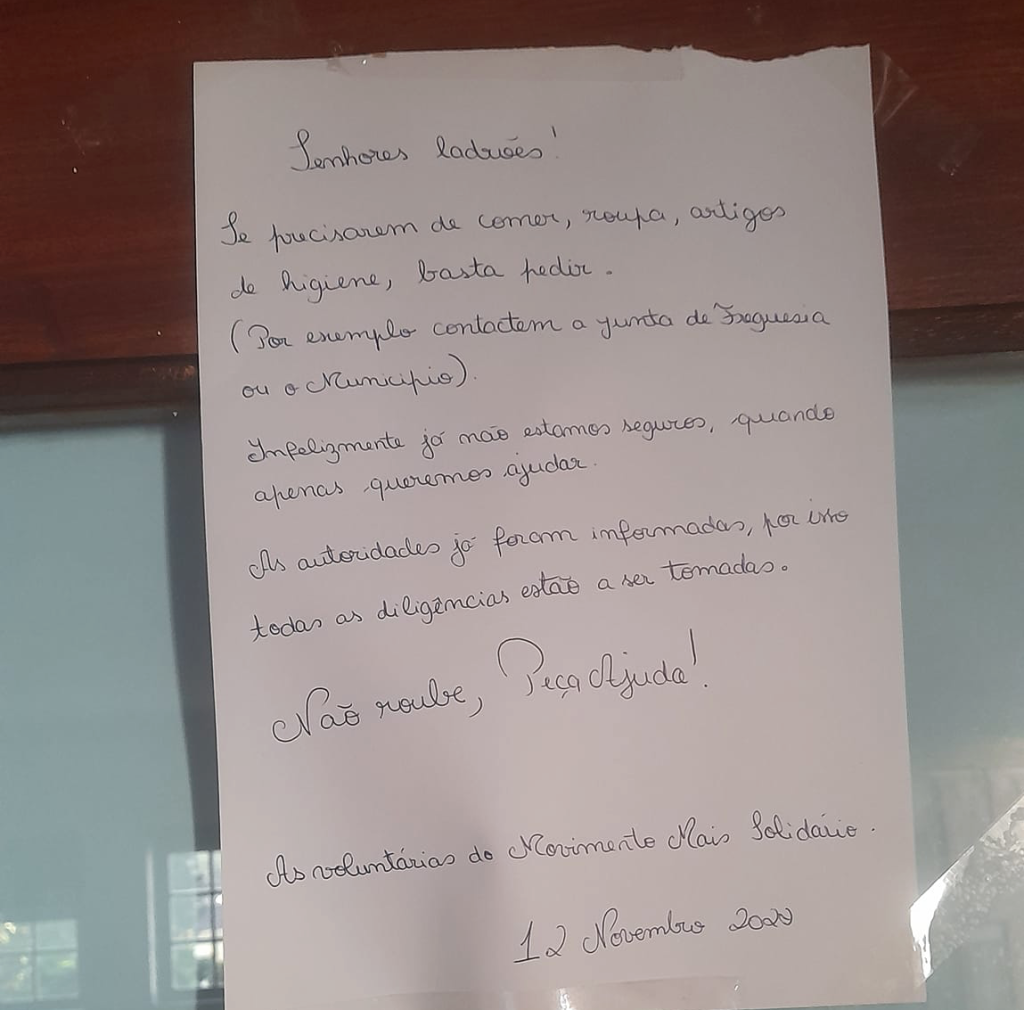 Senhores ladrões!
Se precisarem de comer, roupa, artigos
de higiene, basta pedir.
(Por exemplo contactem a junta de Freguesia
ou o Município).
Infelizmente já não estamos seguros, quando
apenas queremos ajudar.
As autoridades já foram informadas, por isso
todas as diligências estão a ser tomadas.
Não roube, Peça Ajuda!
As voluntárias do Movimento Mais Solidário.
12 Novembro 2020